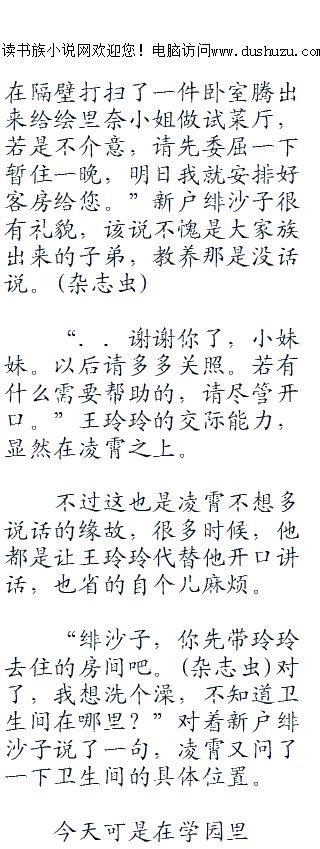 读书族小说网欢迎您！电脑访问www.dushuzu.com
在隔壁打扫了一件卧室腾出
来给绘里奈小姐做试菜厅，
若是不介意，请先委屈一下
暂住一晚，明日我就安排好
客房给您。”新户绯沙子很
有礼貌，该说不愧是大家族
出来的子弟，教养那是没话
说。(杂志虫)
“．．谢谢你了，小妹
妹。以后请多多关照。若有
什么需要帮助的，请尽管开
口。”王玲玲的交际能力，
显然在凌霄之上。
不过这也是凌霄不想多
说话的缘故，很多时候，他
都是让王玲玲代替他开口讲
话，也省的自个儿麻烦。
“绯沙子，你先带玲玲
去住的房间吧。(杂志虫)对
了，我想洗个澡，不知道卫
生间在哪里？”对着新户绯
沙子说了一句，凌霄又问了
一下卫生间的具体位置。
今天可是在学园里